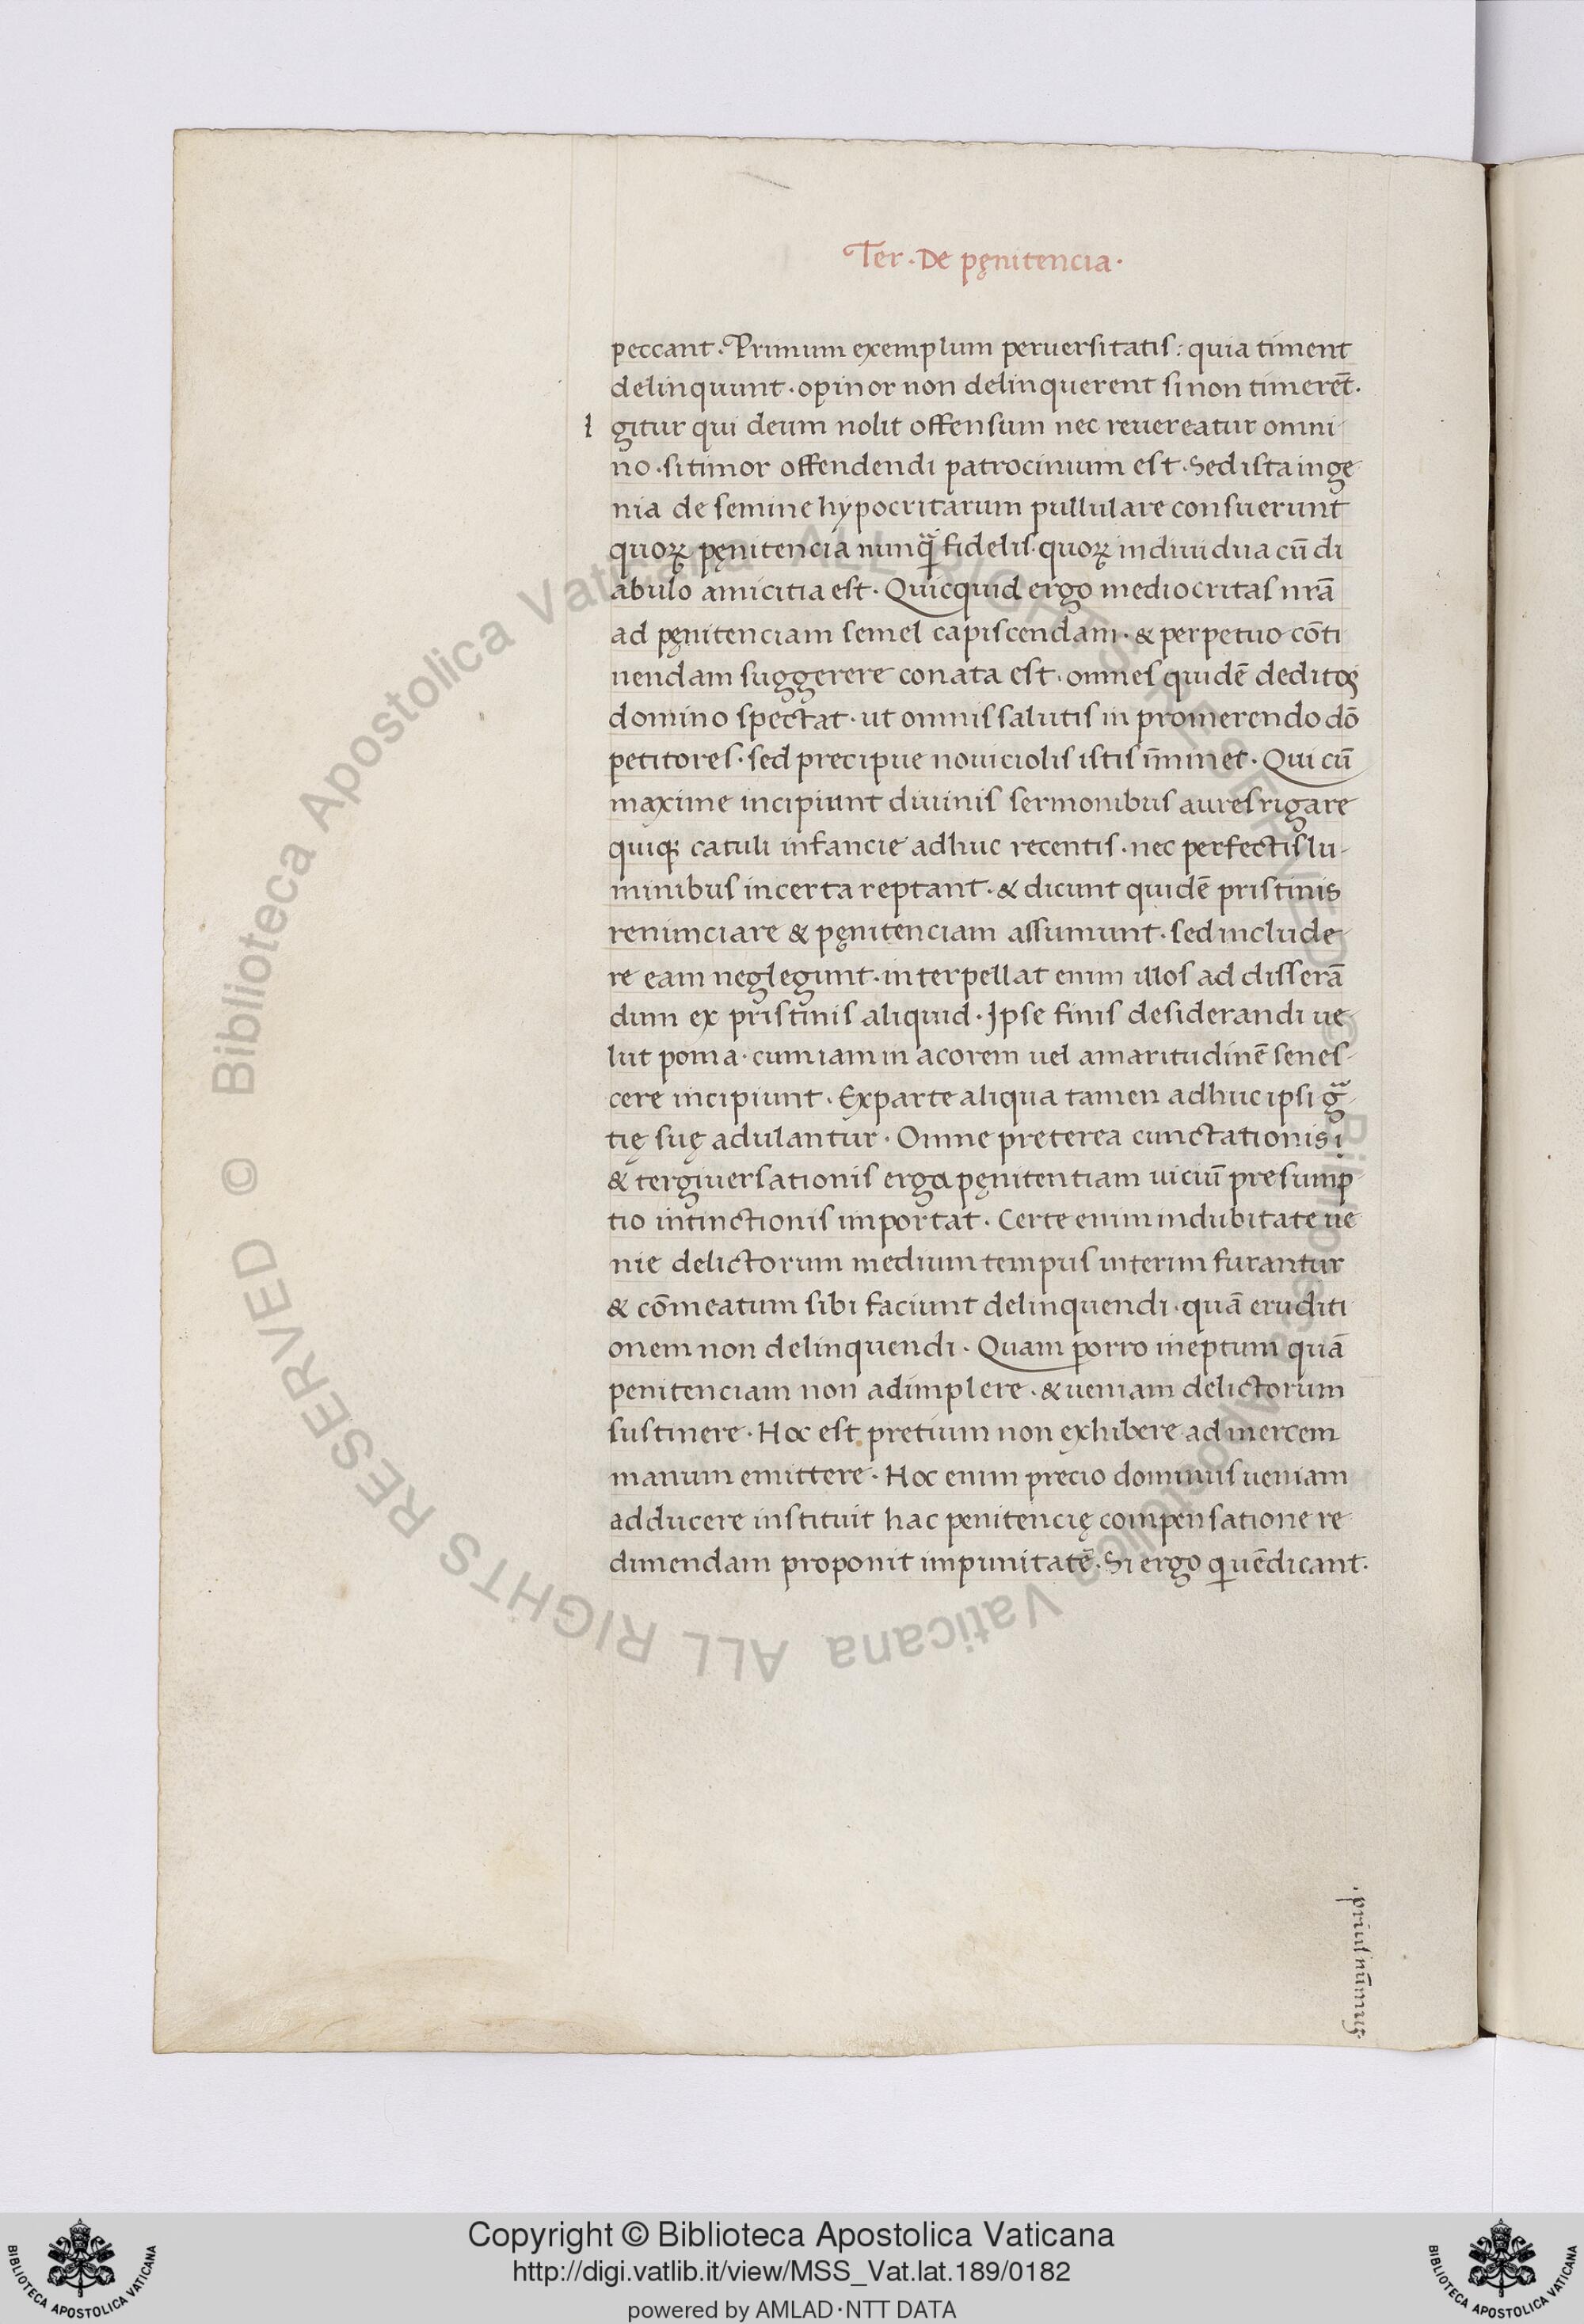 Ter · De pęnitencia ·
peccant · Primum exemplum peruersitatis : quia timent
delinquunt · opinor non delinquerent si non timerēt ·
I gitur qui deum nolit offensum nec reuereatur omni-
no · si timor offendendi patrocinium est · Sed ista inge-
nia de semine hypocritarum pullulare consuerunt
quoꝝ pęnitencia nunꝙ̃ fidelis · quoꝝ indiuidua cū di
abulo amicitia est · Quicquid ergo mediocritas nrā
ad pęnitenciam semel capiscendam · & perpetuo cōti
nendam suggerere conata est · omnes quidē deditos
domino spectat · ut omnis salutis in promerendo dō
petitores · sed precipue nouiciolis istis īminet · Qui cū
maxime incipiunt diuinis sermonibus aures rigare
quiqꝫ catuli infancie adhuc recentis · nec perfectis lu-
minibus incerta reptant · & dicunt quidē pristinis
renunciare & pęnitenciam assumunt · sed include-
re eam neglegunt · interpellat enim illos ad disserā
dum ex pristinis aliquid · Ipse finis desiderandi ue-
lut poma · cum iam in acorem uel amaritudinē senes-
cere incipiunt · Ex parte aliqua tamen adhuc ipsi gᷓ-
tię suę adulantur · Omne preterea cunctationis i
& tergiuersationis erga pęnitentiam uiciū presump-
tio intinctionis importat · Certe enim indubitate ue
nie delictorum medium tempus interim furantur
& cōmeatum sibi faciunt delinquendi · quā eruditi
onem non delinquendi · Quam porro ineptum quā
penitenciam non adimplere · & ueniam delictorum
sustinere · Hoc est pretium non exhibere ad mercem
manum emittere · Hoc enim precio dominus ueniam
adducere instituit hac penitencię compensatione re
dimendam proponit impunitatē · Si ergo qui uēdicant ·
· prius nūmus ·
© Biblioteca Apostolica Vaticana ALL RIGHTS RESERVED
© Biblioteca Apostolica Vaticana ALL RIGHTS RESERVED
Copyright © Biblioteca Apostolica Vaticana
http://digi.vatlib.it/view/MSS_Vat.lat.189/0182
powered by AMLAD·NTT DATA
BIBLIOTECA APOSTOLICA VATICANA
BIBLIOTECA APOSTOLICA VATICANA